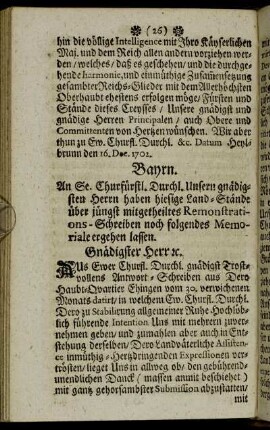 (26)
hin die völlige Intelligence mit Ihro Käyserlichen
Maj. und dem Reich allen andern vorziehen wer-
den / welches / daß es geschehen / und die durchge-
hende harmonie, und einmüthige Zusamensetzung
gesambter Reichs-Glieder mit dem Allerhöchsten
Oberhaubt ehestens erfolgen möge / Fürsten und
Stände dieses Creysses / Unsere gnädigst und
gnädige Herren Principalen / auch Obere und
Committenten von Hertzen wünschen. Wir aber
thun zu Ew. Churfl. Durchl. &c. Datum Heyl-
brunn den 16. Dec. 1702.
Bayrn.
An Se. Churfürstl. Durchl. Unsern gnädig-
sten Herrn haben hiesige Land-Stände
über jüngst mitgetheiltes Remonstrati-
ons-Schreiben noch folgendes Memo-
riale ergehen lassen.
Gnädigster Herr ꝛc.
AUs Ewer Churfl. Durchl. gnädigst Trost-
vollens Antwort-Schreiben aus Dero
Haubt-Quartier Ehingen vom 30. verwichenen
Monats datirt / in welchem Ew. Churfl. Durchl.
Dero zu Stabilirung allgemeiner Ruhe Hochlöb-
lich führende Intention Uns mit mehrern zuver-
nehmen geben / und zumahlen aber auch in Ent-
stehung derselben Dero Landväterliche Assisten-
ce inmüthig-Hertzdringenden Expressionen ver-
trösten / lieget Uns in allweg ob / den gebührend-
unendlichen Danck / (massen anmit beschiehet)
mit gantz gehorsambster Submission abzustatten /
mit